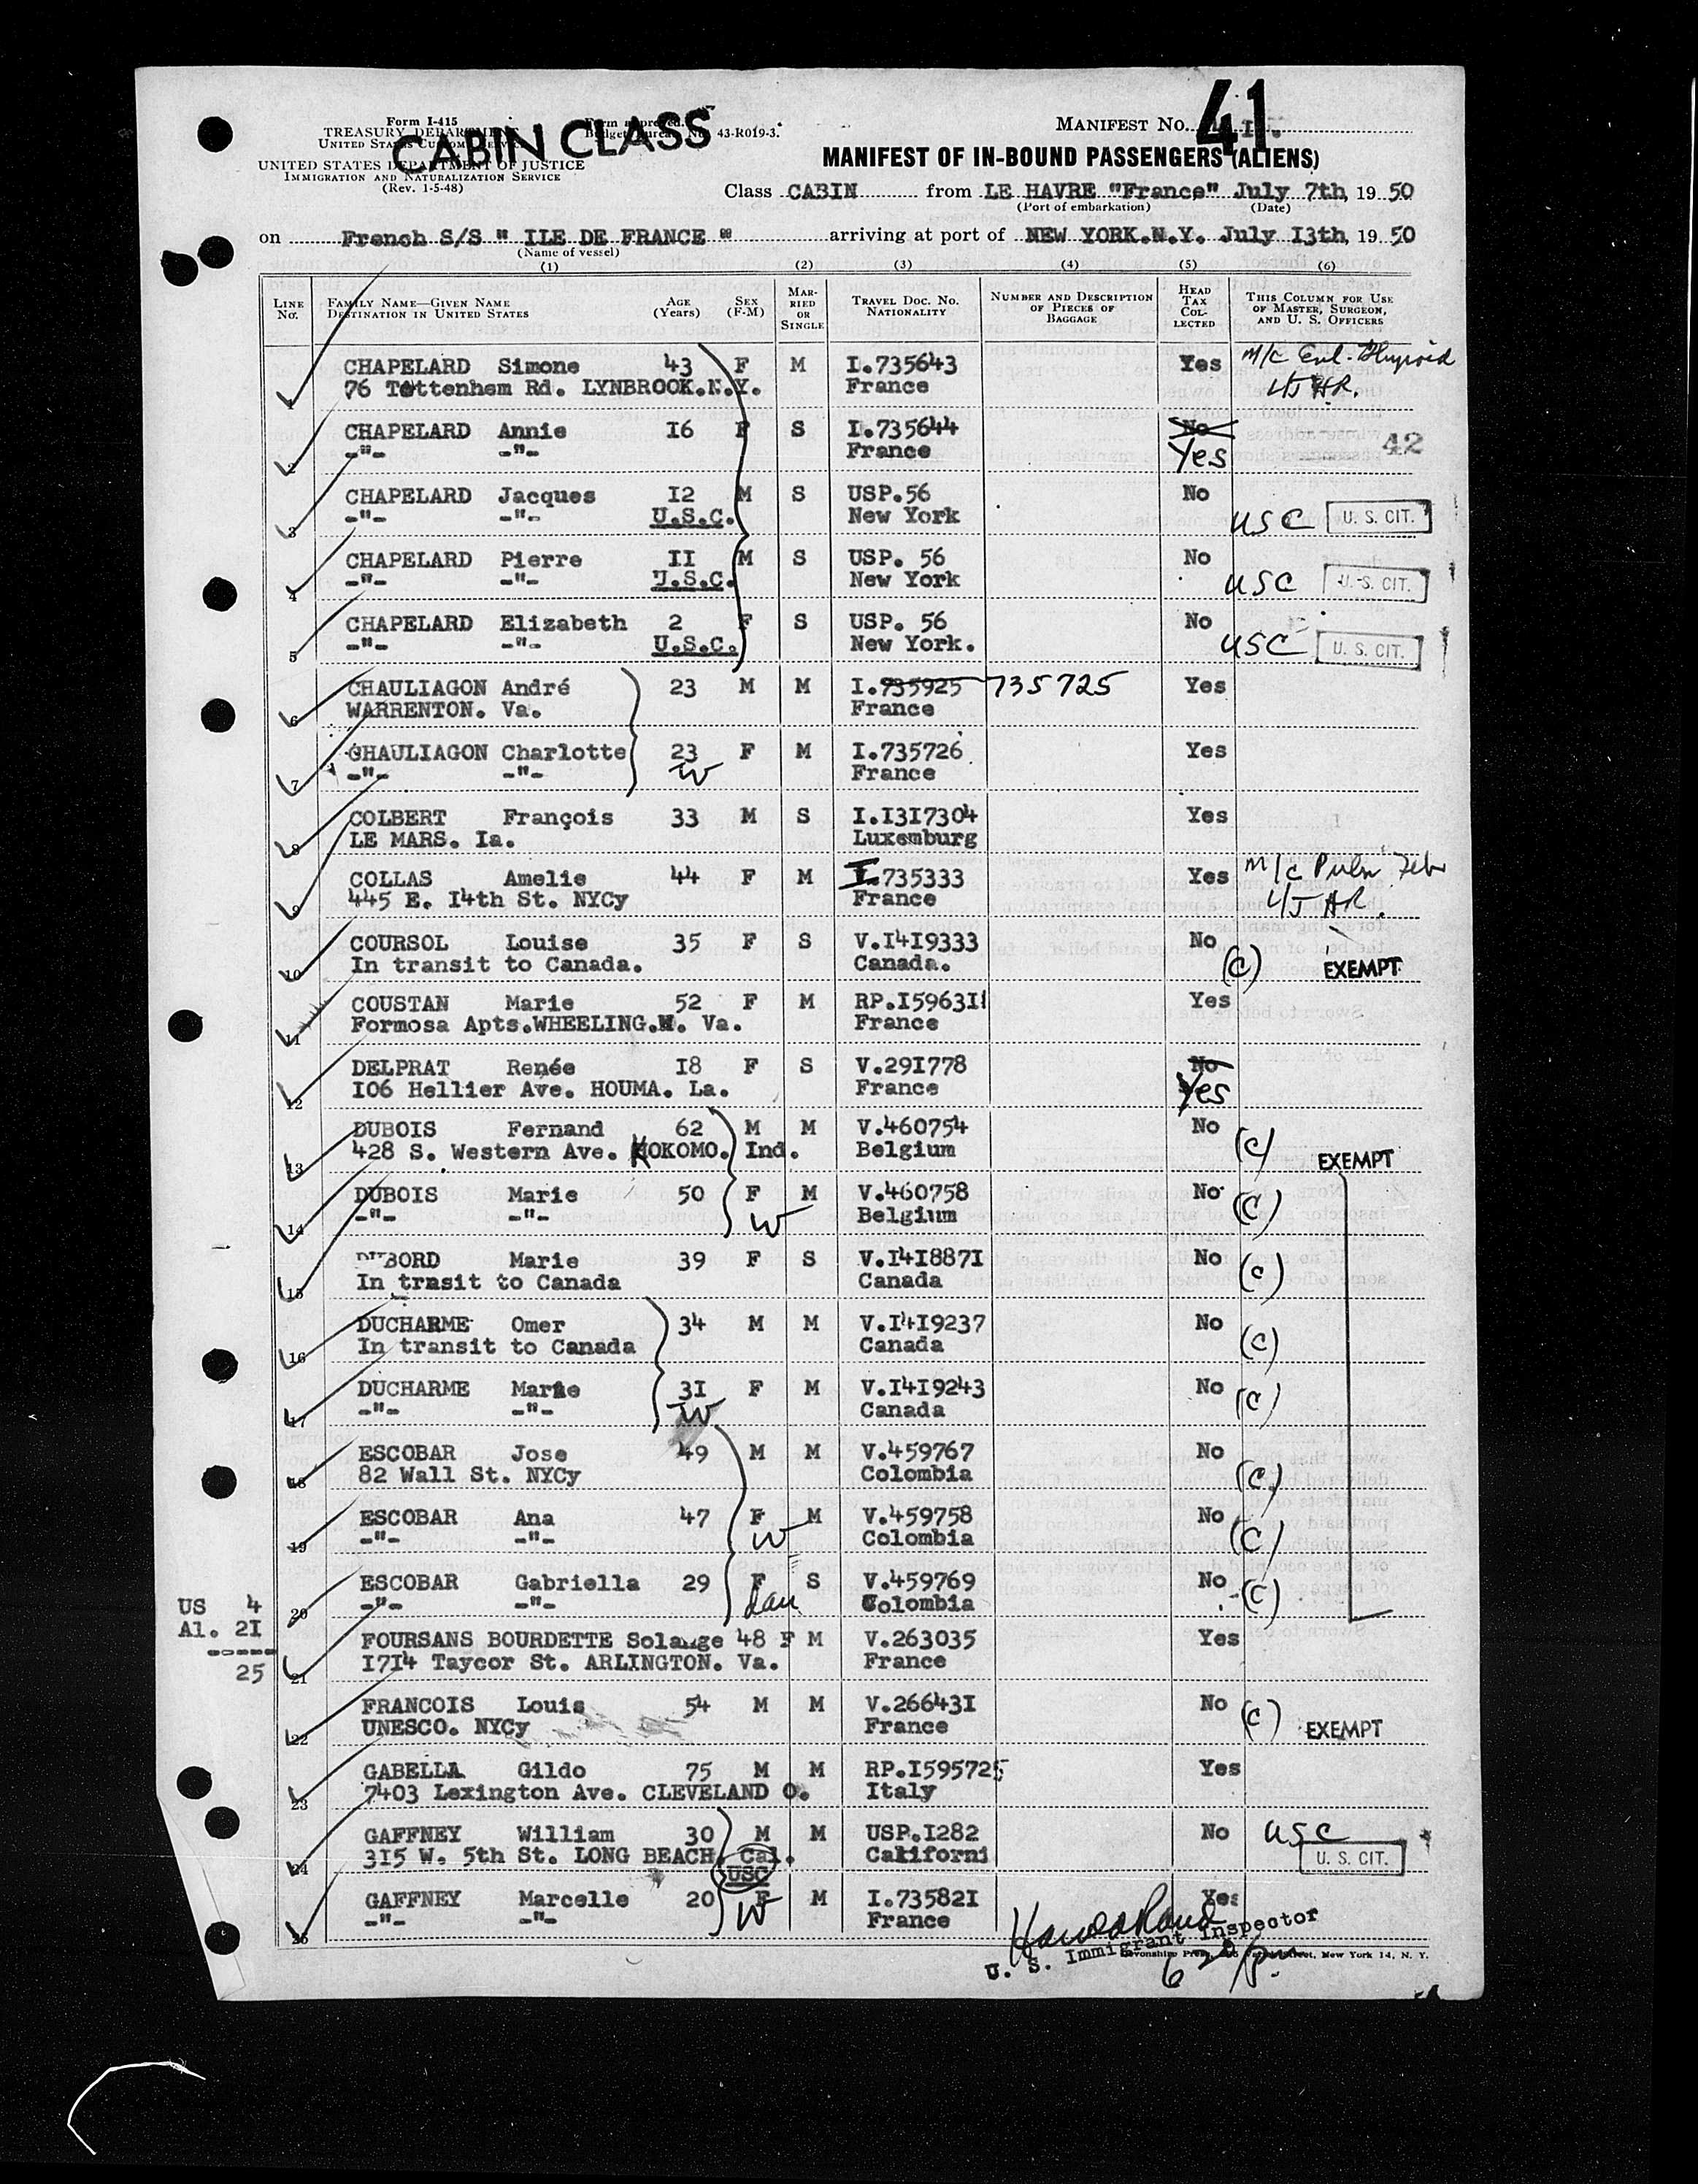 Form I-415
TREASURY DEPARTMENT
UNITED STATES CUSTOMS SERVICE
UNITED STATES DEPARTMENT OF JUSTICE
IMMIGRATION AND NATURALIZATION SERVICE
(Rev. 1-5-48)
Form approved.
Budget Bureau No. 43-R019-3.
CABIN CLASS
MANIFEST No.
41
MANIFEST OF IN-BOUND PASSENGERS (ALIENS)
Class CABIN from LE HAVRE "France" July 7th, 19 50
(Port of embarkation) (Date)
on French S/S " ILE DE FRANCE " arriving at port of NEW YORK.N.Y. July I3th, 19 50
(Name of vessel)
(1) (2) (3) (4) (5) (6)
LINE No. FAMILY NAME—GIVEN NAME DESTINATION IN UNITED STATES AGE (Years) SEX (F-M) MARRIED OR SINGLE TRAVEL DOC. NO. NATIONALITY NUMBER AND DESCRIPTION OF PIECES OF BAGGAGE HEAD TAX COLLECTED THIS COLUMN FOR USE OF MASTER, SURGEON, AND U. S. OFFICERS
1 CHAPELARD Simone 43 F M I.735643 Yes M/c Enl. Thyroid
76 Tottenhem Rd. LYNBROOK.N.Y. France
2 CHAPELARD Annie I6 F S I.735644 No
-"- -"- France Yes 42
3 CHAPELARD Jacques I2 M S USP.56 No
-"- -"- U.S.C. New York USC U. S. CIT.
4 CHAPELARD Pierre II M S USP. 56 No
-"- -"- U.S.C. New York USC U. S. CIT.
5 CHAPELARD Elizabeth 2 F S USP. 56 No
-"- -"- U.S.C. New York. USC U. S. CIT.
6 CHAULIAGON André 23 M M I.735925 735725 Yes
WARRENTON. Va. France
7 CHAULIAGON Charlotte 23 F M I.735726 Yes
-"- -"- W France
8 COLBERT François 33 M S I.I3I7304 Yes
LE MARS. Ia. Luxemburg
9 COLLAS Amelie 44 F M I.735333 Yes M/c Pulm
445 E. I4th St. NYCy France
10 COURSOL Louise 35 F S V.I4I9333 No
In transit to Canada. Canada. (C) EXEMPT
11 COUSTAN Marie 52 F M RP.I5963II Yes
Formosa Apts.WHEELING.W. Va. France
12 DELPRAT Renée I8 F S V.29I778 No
I06 Hellier Ave. HOUMA. La. France Yes
13 DUBOIS Fernand 62 M M V.460754 No (C)
428 S. Western Ave. KOKOMO. Ind. Belgium EXEMPT
14 DUBOIS Marie 50 F M V.460758 No (C)
-"- -"- W Belgium
15 DUBORD Marie 39 F S V.I4I887I No (C)
In trasit to Canada Canada
16 DUCHARME Omer 34 M M V.I4I9237 No (C)
In transit to Canada Canada
17 DUCHARME Marie 3I F M V.I4I9243 No (C)
-"- -"- W Canada
18 ESCOBAR Jose 49 M M V.459767 No (C)
82 Wall St. NYCy Colombia
19 ESCOBAR Ana 47 F M V.459758 No (C)
-"- -"- W Colombia
20 ESCOBAR Gabriella 29 F S V.459769 No (C)
-"- -"- dau Colombia
US 4
Al. 2I
-----
25
21 FOURSANS BOURDETTE Solange 48 F M V.263035 Yes
I7I4 Taycor St. ARLINGTON. Va. France
22 FRANCOIS Louis 54 M M V.26643I No (C)
UNESCO. NYCy France EXEMPT
23 GABELLA Gildo 75 M M RP.I595725 Yes
7403 Lexington Ave. CLEVELAND O. Italy
24 GAFFNEY William 30 M M USP.I282 No USC
3I5 W. 5th St. LONG BEACH. Cal. Californi U. S. CIT.
USC
25 GAFFNEY Marcelle 20 F M I.73582I Yes
-"- -"- W France
U. S. Immigrant Inspector
New York 14, N. Y.